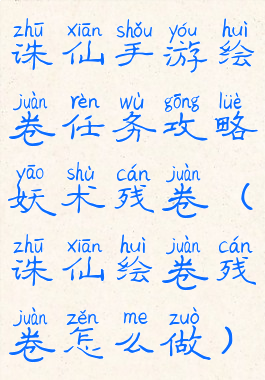 zhū xiān shǒu yóu huì
诛仙手游绘
juàn rèn wù gōng lüè
卷任务攻略
yāo shù cán juàn
妖术残卷（
zhū xiān huì juàn cán
诛仙绘卷残
juàn zěn me zuò
卷怎么做）